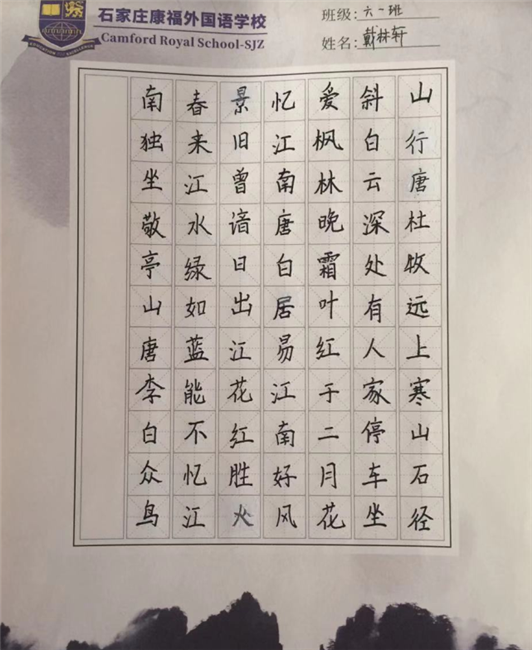 石家庄康福外国语学校
Camford Royal School-SJZ
班级:六一班
姓名:戴林轩
山行唐杜牧远上寒山石径
斜白云深处有人家停车坐
爱枫林晚霜叶红于二月花
忆江南唐白居易江南好风
景旧曾谙日出江花红胜火
春来江水绿如蓝能不忆江
南独坐敬亭山唐李白众鸟